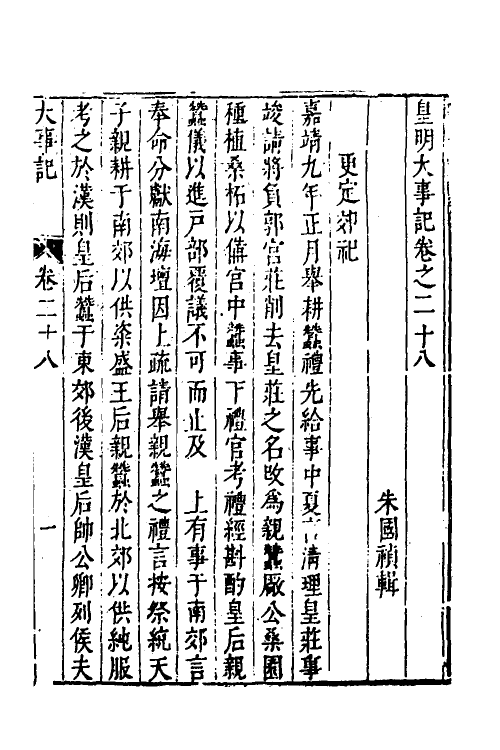 皇明大事記卷之二十八
朱國禎輯
更定郊祀
嘉靖九年正月舉耕蠶禮先給事中夏言清理皇莊事
竣請將負郭宮莊削去皇莊之名改為親蠶厰公桑園
種植桑柘以備宮中蠶事下禮官考禮經斟酌皇后親
蠶儀以進戸部覆議不可而止及 上有事于南郊言
奉命分獻南海壇因上疏請舉親蠶之禮言按祭統天
子親耕于南郊以供粢盛王后親蠶於北郊以供純服
考之於漢則皇后蠶于東郊後漢皇后帥公卿列侯夫
大事記 卷二十八 一